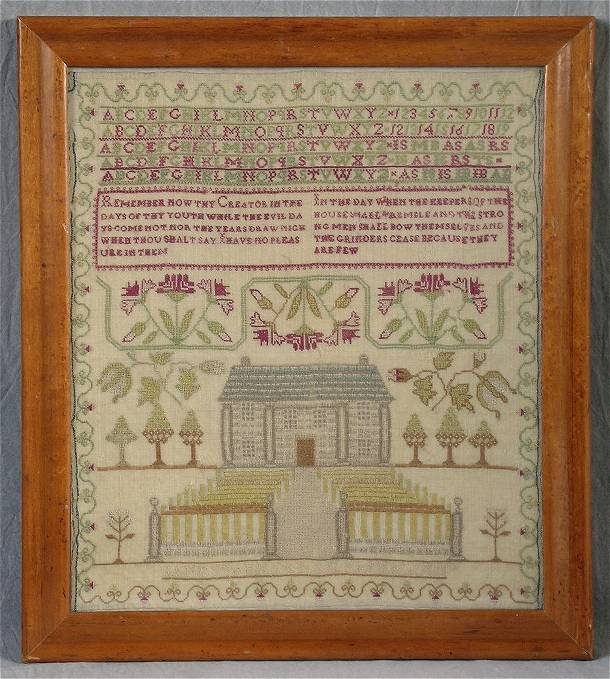 ABCDEFGHIKLMNOPQRSTVWXYZ
ABCDEFGHIKLMNOPQRSTVWXYZ
ABCDEFGHIKLMNOPQRSTVWXYZ
ABCDEFGHIKLMNOPQRSTVWXYZ
ABCDEFGHIKLMNOPQRSTVWXYZ
REMEMBER NOW THY CREATOR IN THE
DAYS OF THY YOUTH WHILE THE EVIL DA
YS COME NOT NOR THE YEARS DRAW NIGH
WHEN THOU SHALT SAY I HAVE NO PLEAS
URE IN THEM
IN THE DAY WHEN THE KEEPERS OF THE
HOUSE SHALL TREMBLE AND THE STRO
NG MEN SHALL BOW THEMSELVES AND
THE GRINDERS CEASE BECAUSE THEY
ARE FEW